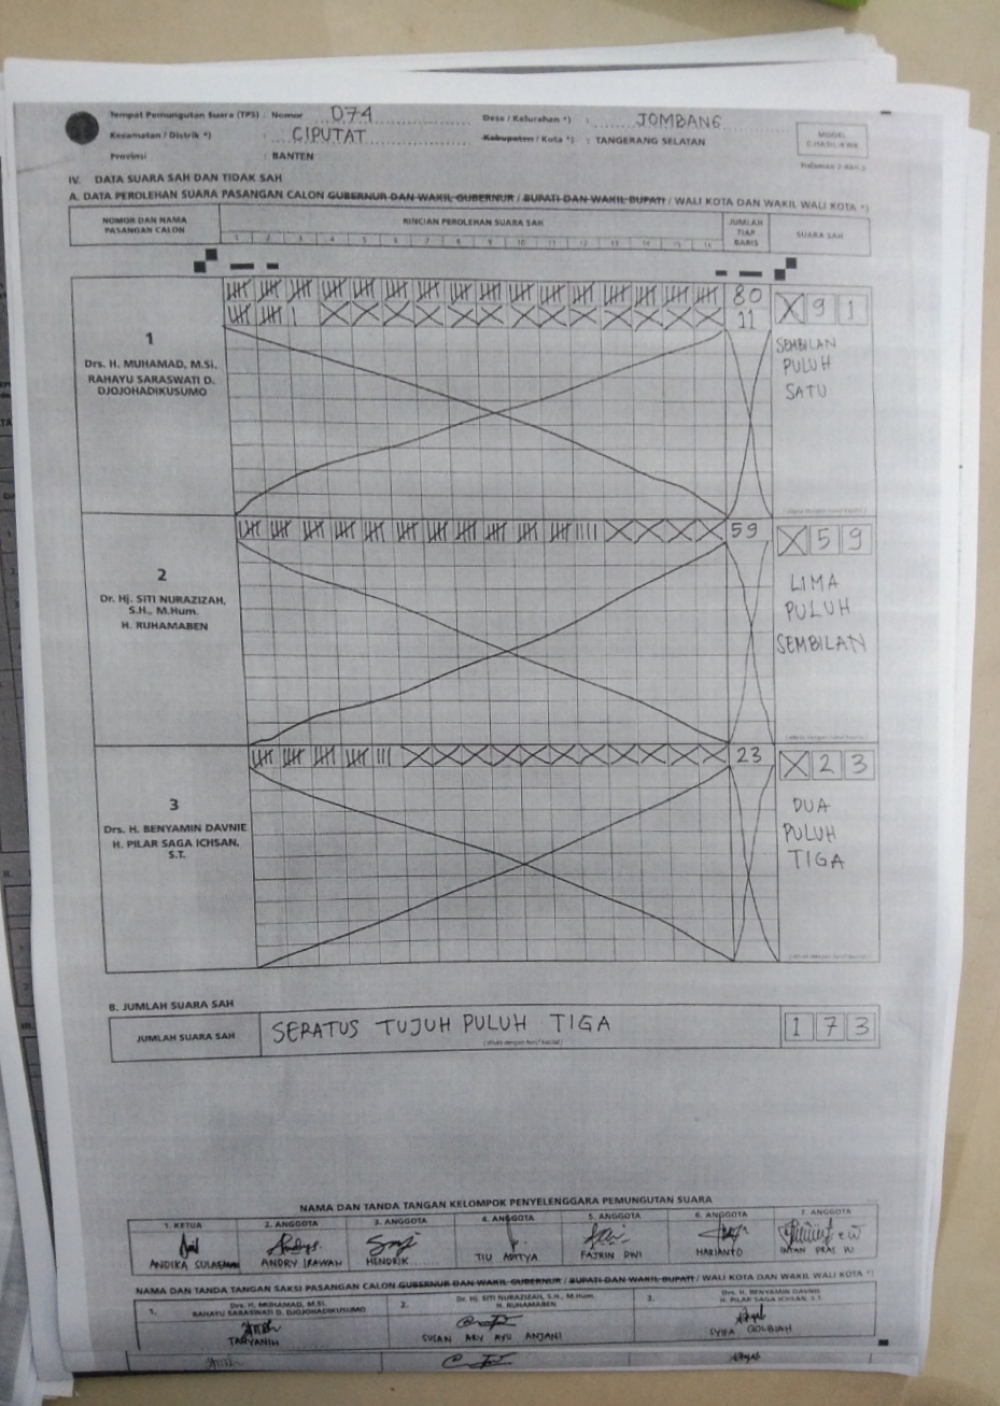 Tempat Pemungutan Suara (TPS) : Nomor 074 Desa / Kelurahan *) : JOMBANG
Kecamatan / Distrik *) : CIPUTAT Kabupaten / Kota *) : TANGERANG SELATAN
Provinsi : BANTEN
MODEL
C.HASIL-KWK
Halaman 2
IV. DATA SUARA SAH DAN TIDAK SAH
A. DATA PEROLEHAN SUARA PASANGAN CALON GUBERNUR DAN WAKIL GUBERNUR / BUPATI DAN WAKIL BUPATI / WALI KOTA DAN WAKIL WALI KOTA *)
NOMOR DAN NAMA PASANGAN CALON
RINCIAN PEROLEHAN SUARA SAH
1 2 3 4 5 6 7 8 9 10 11 12 13 14 15 16
JUMLAH TIAP BARIS
SUARA SAH
1
Drs. H. MUHAMAD, M.Si.
RAHAYU SARASWATI D.
DJOJOHADIKUSUMO
80
11
X 9 1
SEMBILAN
PULUH
SATU
2
Dr. Hj. SITI NURAZIZAH,
S.H., M.Hum.
H. RUHAMABEN
59
X 5 9
LIMA
PULUH
SEMBILAN
3
Drs. H. BENYAMIN DAVNIE
H. PILAR SAGA ICHSAN,
S.T.
23
X 2 3
DUA
PULUH
TIGA
B. JUMLAH SUARA SAH
JUMLAH SUARA SAH SERATUS TUJUH PULUH TIGA 1 7 3
NAMA DAN TANDA TANGAN KELOMPOK PENYELENGGARA PEMUNGUTAN SUARA
1. KETUA 2. ANGGOTA 3. ANGGOTA 4. ANGGOTA 5. ANGGOTA 6. ANGGOTA 7. ANGGOTA
ANDIKA ANDRY IRAWAN HENDRIK TIU ADITYA FAJRIN DWI HARIANTO INTAN PRAS W
NAMA DAN TANDA TANGAN SAKSI PASANGAN CALON GUBERNUR DAN WAKIL GUBERNUR / BUPATI DAN WAKIL BUPATI / WALI KOTA DAN WAKIL WALI KOTA *)
1. Drs. H. MUHAMAD, M.Si. 2. Dr. Hj. SITI NURAZIZAH, S.H., M.Hum. 3. Drs. H. BENYAMIN DAVNIE
RAHAYU SARASWATI D. DJOJOHADIKUSUMO H. RUHAMABEN H. PILAR SAGA ICHSAN, S.T.
TARYANIH SUSAN ARY AYU ANJANI SYIFA GOLBIAH